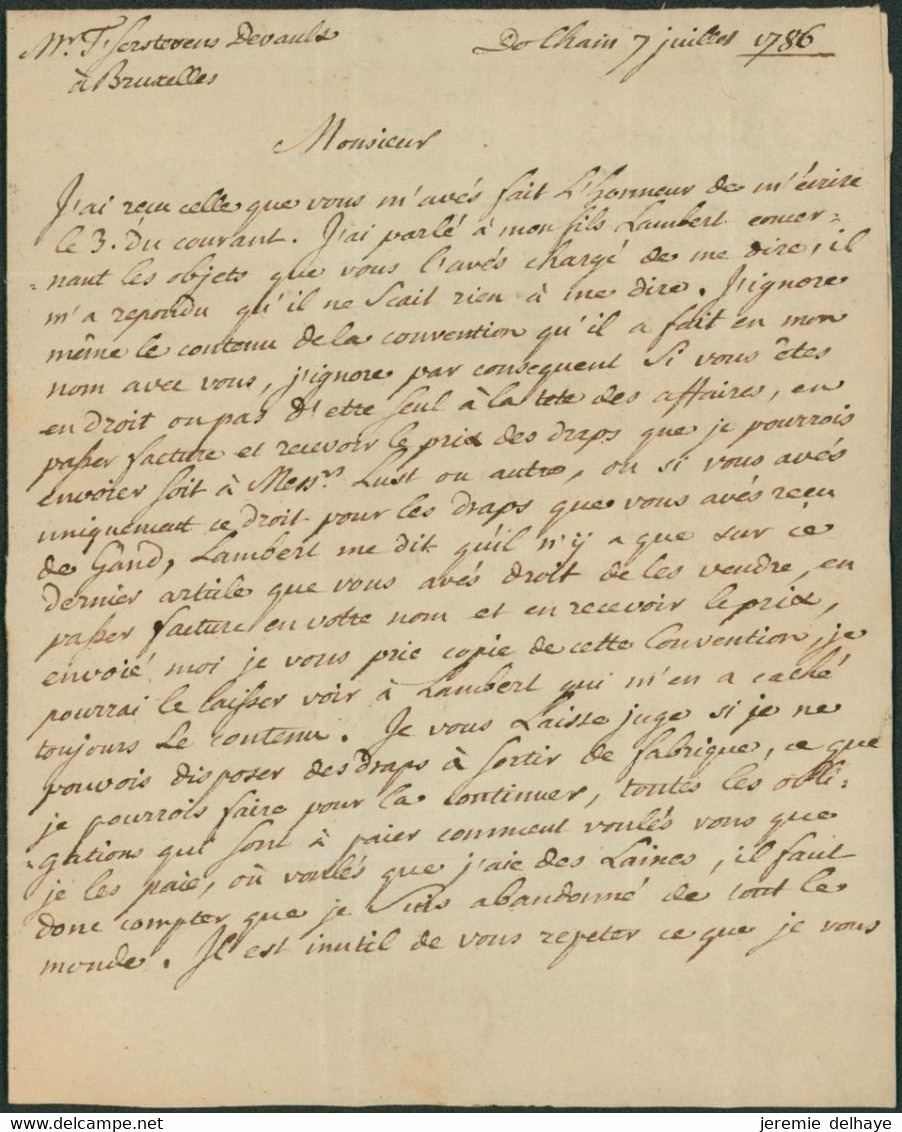 Mr. T'Serstevens Devaulx
à Bruxelles
Dolhain 7 juillet 1786
Monsieur
J'ai reçu celle que vous m'avés fait L'honneur de m'écrire
le 3. du courant. J'ai parlé à mon fils Lambert concer=
=nant les objets que vous l'avés chargé de me dire, il
m'a repondu qu'il ne Scait rien à me dire. J'ignore
même le contenu de la convention qu'il a fait en mon
nom avec vous, j'ignore par consequent Si vous êtes
en droit ou pas d'etre seul à la tete des affaires, en
passer facture et recevoir le prix des draps que je pourrois
envoier soit à Messrs. Lust ou autre, ou si vous avés
uniquement ce droit pour les draps que vous avés recu
de Gand, Lambert me dit qu'il n'ÿ a que sur ce
dernier article que vous avés droit de les vendre, en
passer facture en votre nom et en recevoir le prix,
envoié moi je vous prie copie de cette Convention, je
pourrai le laisser voir à Lambert qui m'en a caché
toujours Le contenu. Je vous Laisse juge si je ne
pouvois disposer des draps à sortir de fabrique, ce que
je pourrois faire pour la continuer, toutes les obli=
=gations qui sont à paier comment voulés vous que
je les paie, où voulés que j'aie des Laines, il faut
donc compter que je Suis abandonné de tout le
monde. Il est inutil de vous repeter ce que je vous
jeremie delhaye